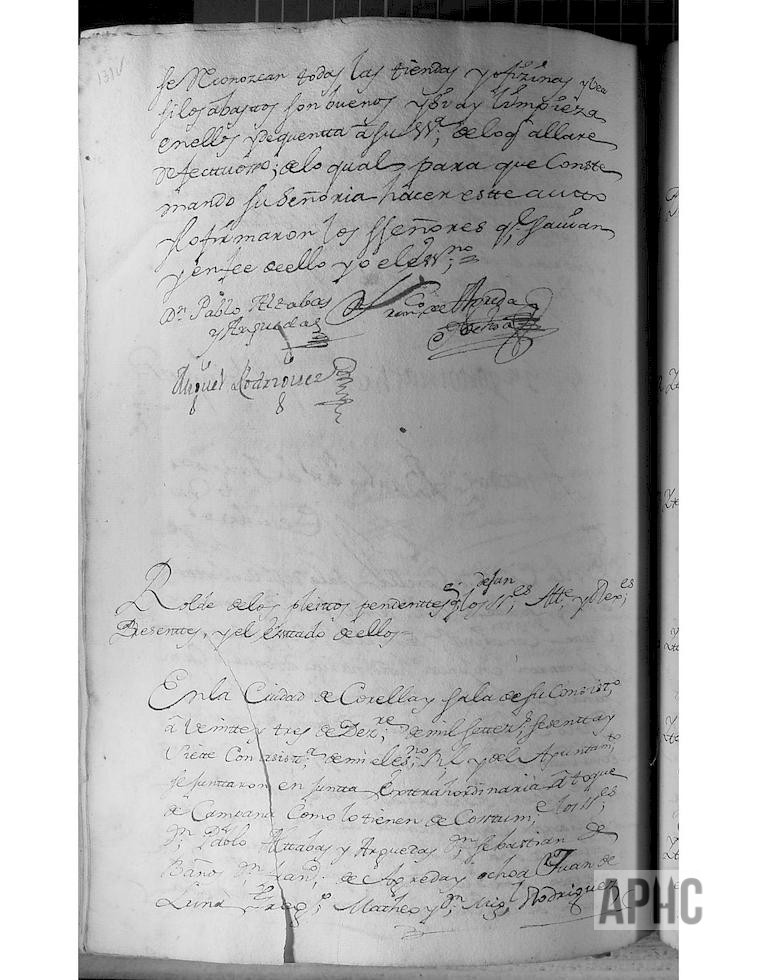 131v
se Reconozcan todas las tiendas y ofizinas y vea
si los abastos son buenos y si ay limpieza
en ellos y de quentta â su Ssª; de lo q̃ allare
defecttuosso; de lo qual, para que Conste
mando su Señoria hacer estte autto
y lo firmaron los Sseñores q̃ savian
y en fee de ello yo el es^no;=
Dn Pablo Alzabas
y Arguedas
Franco de Apreza
y ochoa
Miguel Rodriguez
de jan
Rolde de los pleittos pendenttes q̃ los SS^es; Alte y Rex^es;
Presenttes, y el Esttado de ellos=
En la Ciudad de Corella y Sala de su Consist^o
â Veintte y tres de Dez^re; de mil settez^s; sesentta y
Siette Con asistª de mi el es^no; Rl, y del Ayuntam^to
se junttaron en juntta Exttrahordinaria â toque
de Campana Como lo tienen de Costum^e; los SS^es;
Dn Pablo Alzabas y Arguedas Dn Sebastian de
Baños Dn Fran^co; de Apreda y ochoa Juan de
Luna Greg^o Matheo y Dn Mig^l Rodriguez
APHC